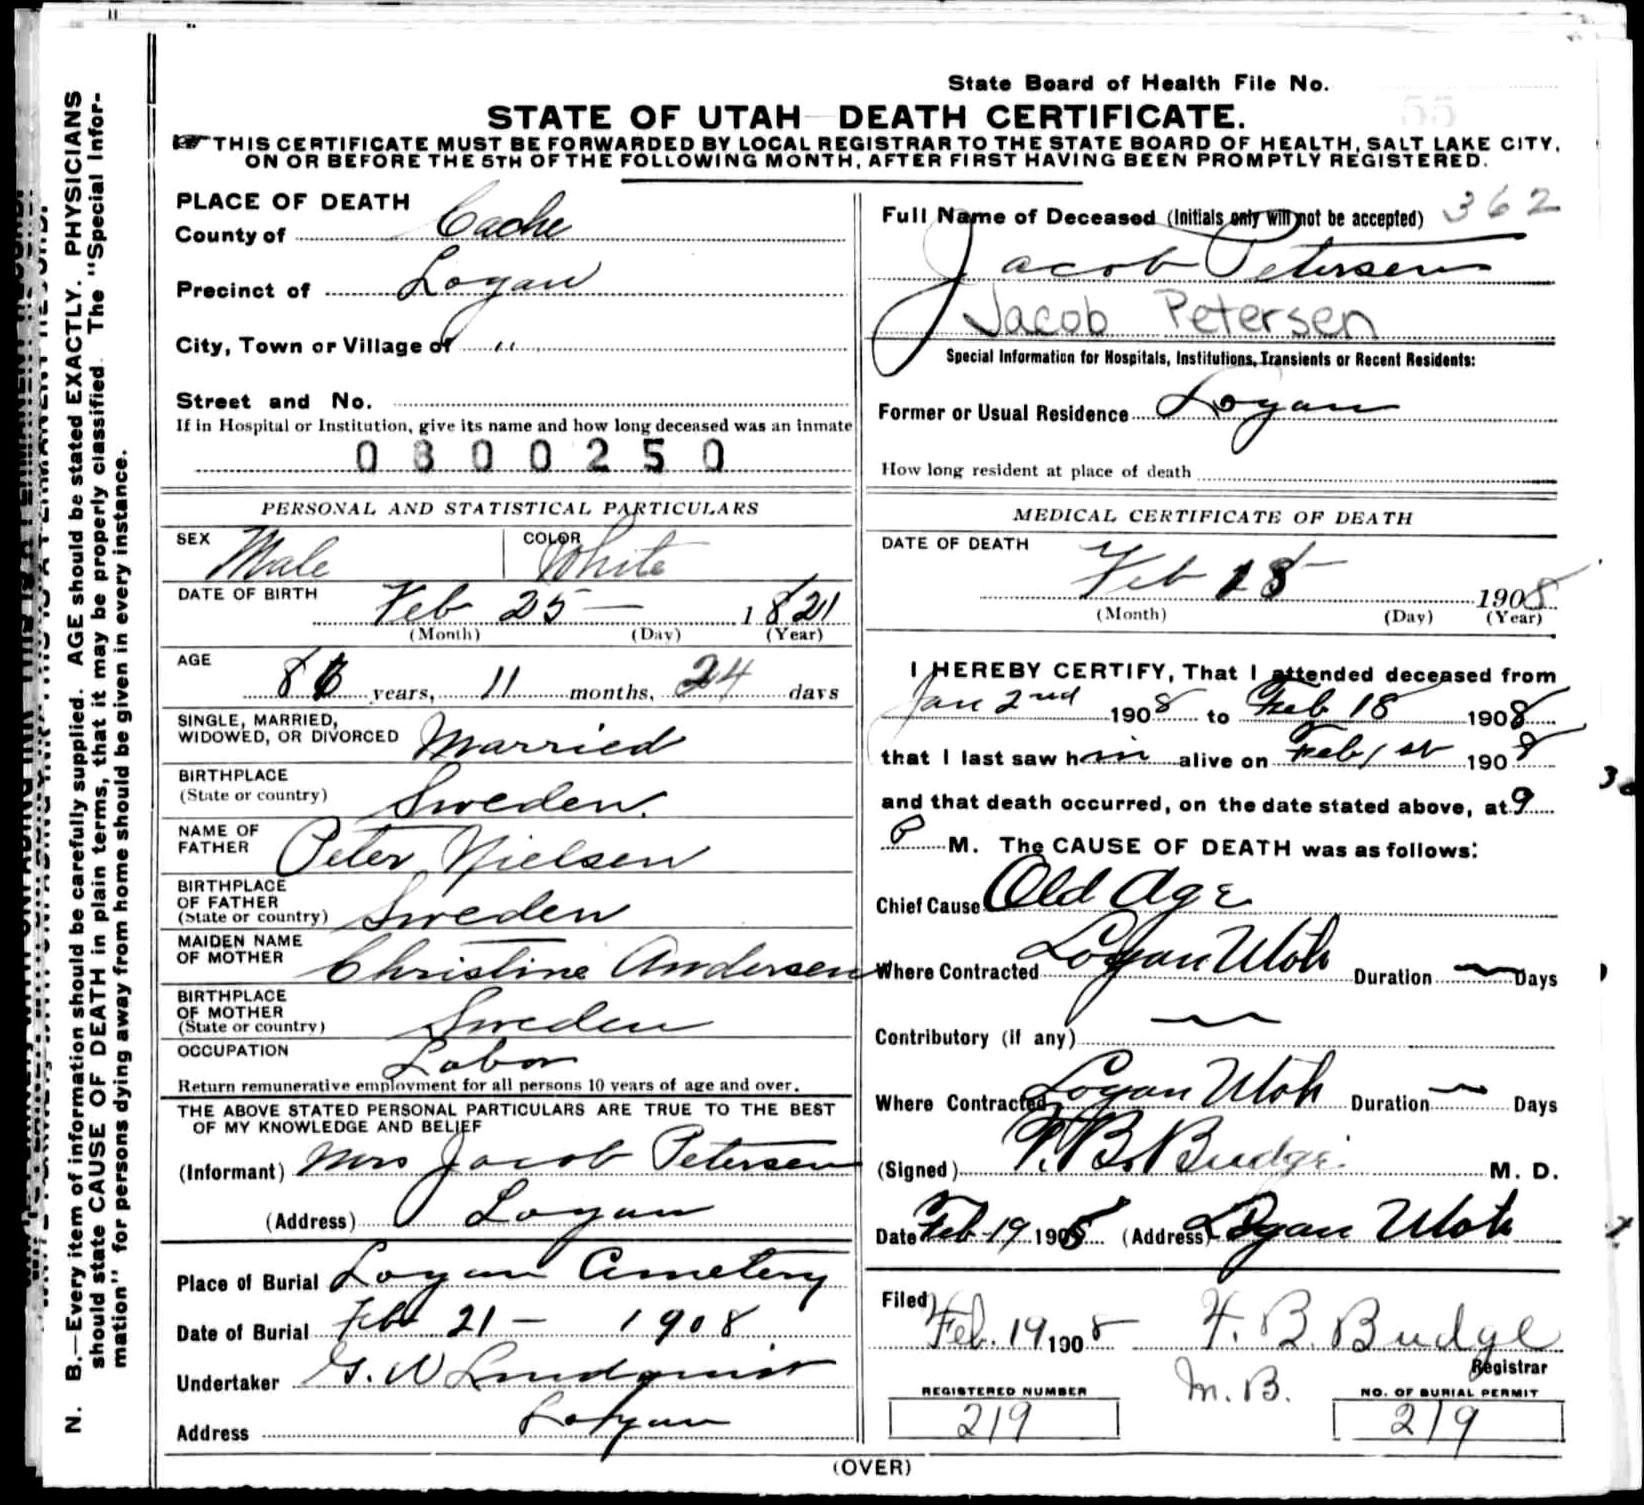 State Board of Health File No.
55
STATE OF UTAH DEATH CERTIFICATE.
THIS CERTIFICATE MUST BE FORWARDED BY LOCAL REGISTRAR TO THE STATE BOARD OF HEALTH, SALT LAKE CITY,
ON OR BEFORE THE 5TH OF THE FOLLOWING MONTH, AFTER FIRST HAVING BEEN PROMPTLY REGISTERED.
N. B.—Every item of information should be carefully supplied. AGE should be stated EXACTLY. PHYSICIANS
should state CAUSE OF DEATH in plain terms, that it may be properly classified. The "Special Infor-
mation" for persons dying away from home should be given in every instance.
PLACE OF DEATH
County of Cache
Precinct of Logan
City, Town or Village of "
Street and No.
If in Hospital or Institution, give its name and how long deceased was an inmate
0300250
PERSONAL AND STATISTICAL PARTICULARS
SEX Male COLOR White
DATE OF BIRTH Feb 25 — 1821
(Month) (Day) (Year)
AGE 86 years, 11 months, 24 days
SINGLE, MARRIED,
WIDOWED, OR DIVORCED Married
BIRTHPLACE
(State or country) Sweden.
NAME OF
FATHER Peter Nielsen
BIRTHPLACE
OF FATHER
(State or country) Sweden
MAIDEN NAME
OF MOTHER Christine Andersen
BIRTHPLACE
OF MOTHER
(State or country) Sweden
OCCUPATION Labor
Return remunerative employment for all persons 10 years of age and over.
THE ABOVE STATED PERSONAL PARTICULARS ARE TRUE TO THE BEST
OF MY KNOWLEDGE AND BELIEF
(Informant) Mrs Jacob Petersen
(Address) Logan
Place of Burial Logan Cemetery
Date of Burial Feb 21 — 1908
Undertaker G. W Lindquist
Address Logan
Full Name of Deceased (Initials only will not be accepted) 362
Jacob Petersen
Jacob Petersen
Special Information for Hospitals, Institutions, Transients or Recent Residents:
Former or Usual Residence Logan
How long resident at place of death
MEDICAL CERTIFICATE OF DEATH
DATE OF DEATH Feb 18 — 1908
(Month) (Day) (Year)
I HEREBY CERTIFY, That I attended deceased from
Jan 2nd 1908 to Feb 18 1908
that I last saw him alive on Feb 1st 1908
and that death occurred, on the date stated above, at 9
P M. The CAUSE OF DEATH was as follows:
Chief Cause Old Age
Where Contracted Logan Utah Duration — Days
Contributory (if any) —
Where Contracted Logan Utah Duration — Days
(Signed) F. B. Budge M. D.
Date Feb-19 1908 (Address) Logan Utah
Filed Feb. 19 1908 F. B. Budge
Registrar
M. B.
REGISTERED NUMBER
219
NO. OF BURIAL PERMIT
219
(OVER)